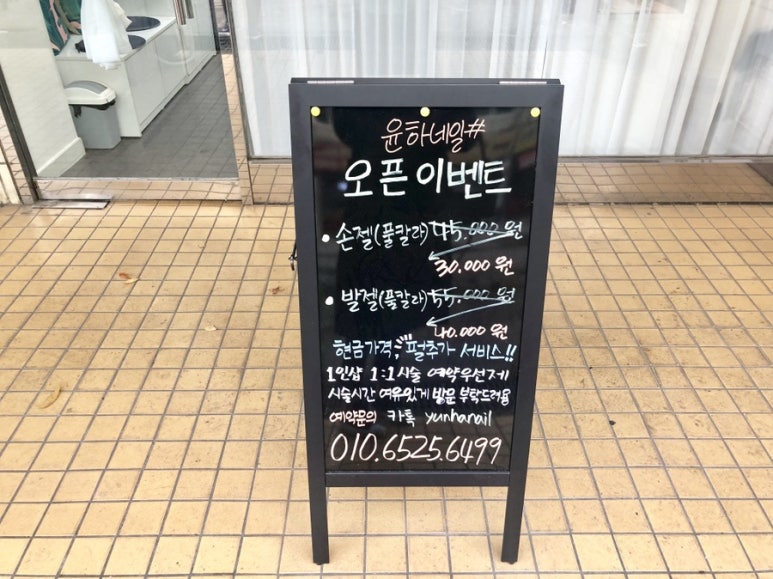 윤하네일#
오픈 이벤트
• 손젤(풀칼라) 45.000 원
30.000 원
• 발젤(풀칼라) 55.000 원
40.000 원
현금가격, 펄추가 서비스!!
1인샵 1:1 시술 예약우선제
시술시간 여유있게 방문 부탁드려용
예약문의 카톡 yunhanail
010.6525.6499